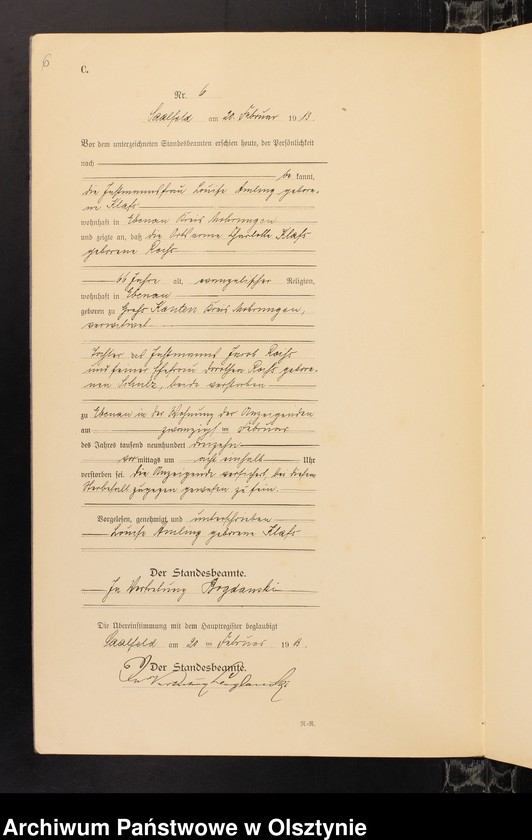 6
C.
Nr. 6
Saalfeld am 20 Februar 1913.
Vor dem unterzeichneten Standesbeamten erschien heute, der Persönlichkeit
nach
be kannt,
die Instmannsfrau Louise Amling gebore-
ne Klafs
wohnhaft in Ebenau Kreis Mohrungen
und zeigte an, daß die Ortsarme Charlotte Klafs
geborene Rochs
66 Jahre alt, evangelischer Religion,
wohnhaft in Ebenau
geboren zu Groß Kanten Kreis Mohrungen,
verwitwet
Tochter des Instmanns Jacob Rochs
und seiner Ehefrau Dorothea Rochs gebore-
nen Schulz, beide verstorben
zu Ebenau in der Wohnung der Anzeigenden
am zwanzigsten Februar
des Jahres tausend neunhundert dreizehn
vormittags um acht einhalb Uhr
verstorben sei. Die Anzeigende versichert, bei diesem
Sterbefall zugegen gewesen zu sein.
Vorgelesen, genehmigt und unterschrieben
Louise Amling geborene Klafs
Der Standesbeamte.
In Vertretung Bogdanski
Die Übereinstimmung mit dem Hauptregister beglaubigt
Saalfeld am 20 ten Februar 1913.
Der Standesbeamte.
In Vertretung
N-R.
Archiwum Państwowe w Olsztynie